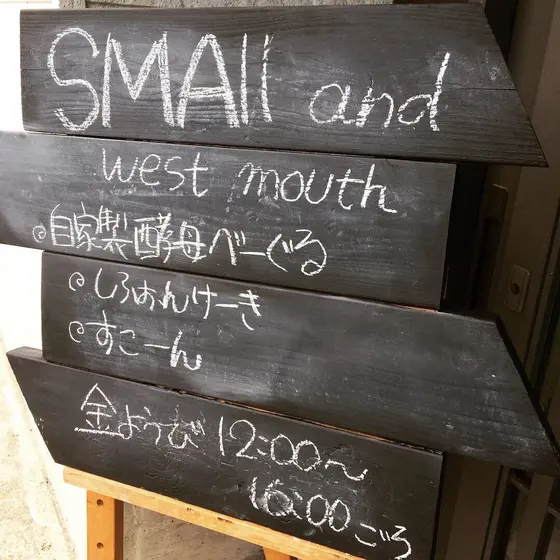 SMAll and
west mouth
◎自家製酵母べーぐる
◎しろあんけーき
◎すこーん
金ようび 12:00〜
16:00ごろ